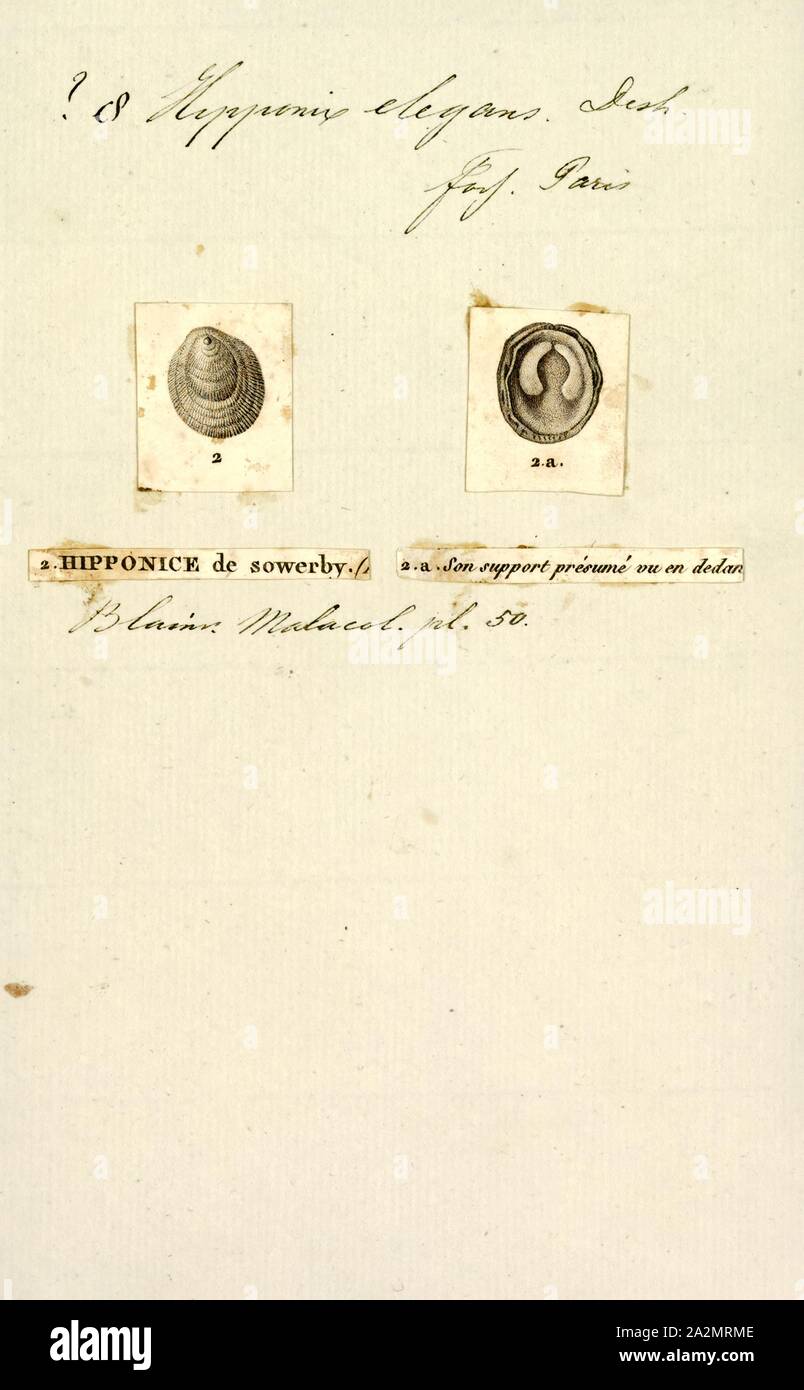 ? 8 Hipponix elegans. Desh.
Foss. Paris
2
2.a.
2. HIPPONICE de sowerby. (
2.a. Son support présumé vu en dedan
Blainv. Malacol. pl. 50.
alamy
alamy
Image ID: 2A2MRME
www.alamy.com